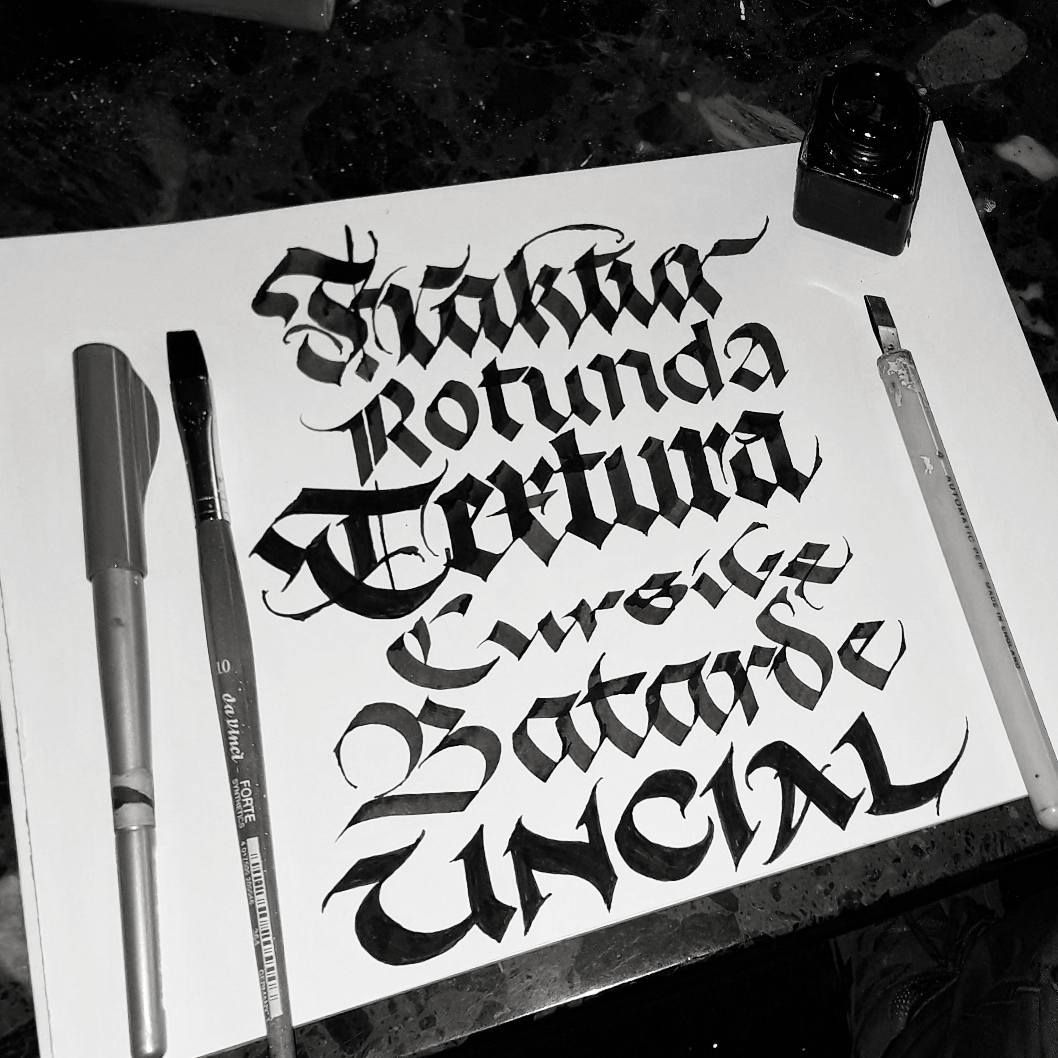 Fraktur
Rotunda
Textura
Cursive
Batarde
UNCIAL
10 da Vinci FORTE
SYNTHETICS
AUTOMATIC PEN MADE IN ENGLAND